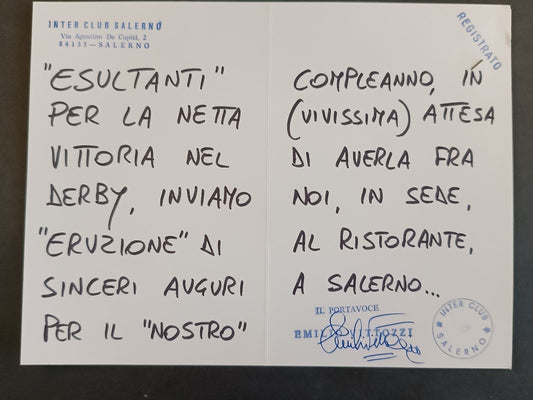 INTER CLUB SALERNO
Via Agostino De Capiti, 2
84133 — SALERNO
REGISTRATO
"ESULTANTI"
PER LA NETTA
VITTORIA NEL
DERBY, INVIAMO
"ERUZIONE" DI
SINCERI AUGURI
PER IL "NOSTRO"
COMPLEANNO, IN
(VIVISSIMA) ATTESA
DI AVERLA FRA
NOI, IN SEDE,
AL RISTORANTE,
A SALERNO...
IL PORTAVOCE
INTER CLUB
SALERNO